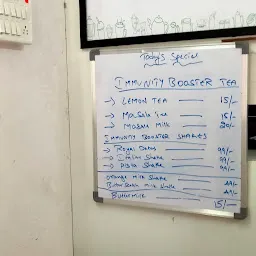 Today's Special
IMMUNITY BOOSTER TEA
→ LEMON TEA — 15/-
→ Masala Tea — 15/-
→ Masala Milk — 20/-
IMMUNITY BOOSTER SHAKES
→ Royal Dates — 99/-
→ Shake — 99/-
→ Pista Shake — 99/-
Orange Milk Shake — 49/-
Butterscotch Milk Shake — 49/-
Buttermilk — 15/-